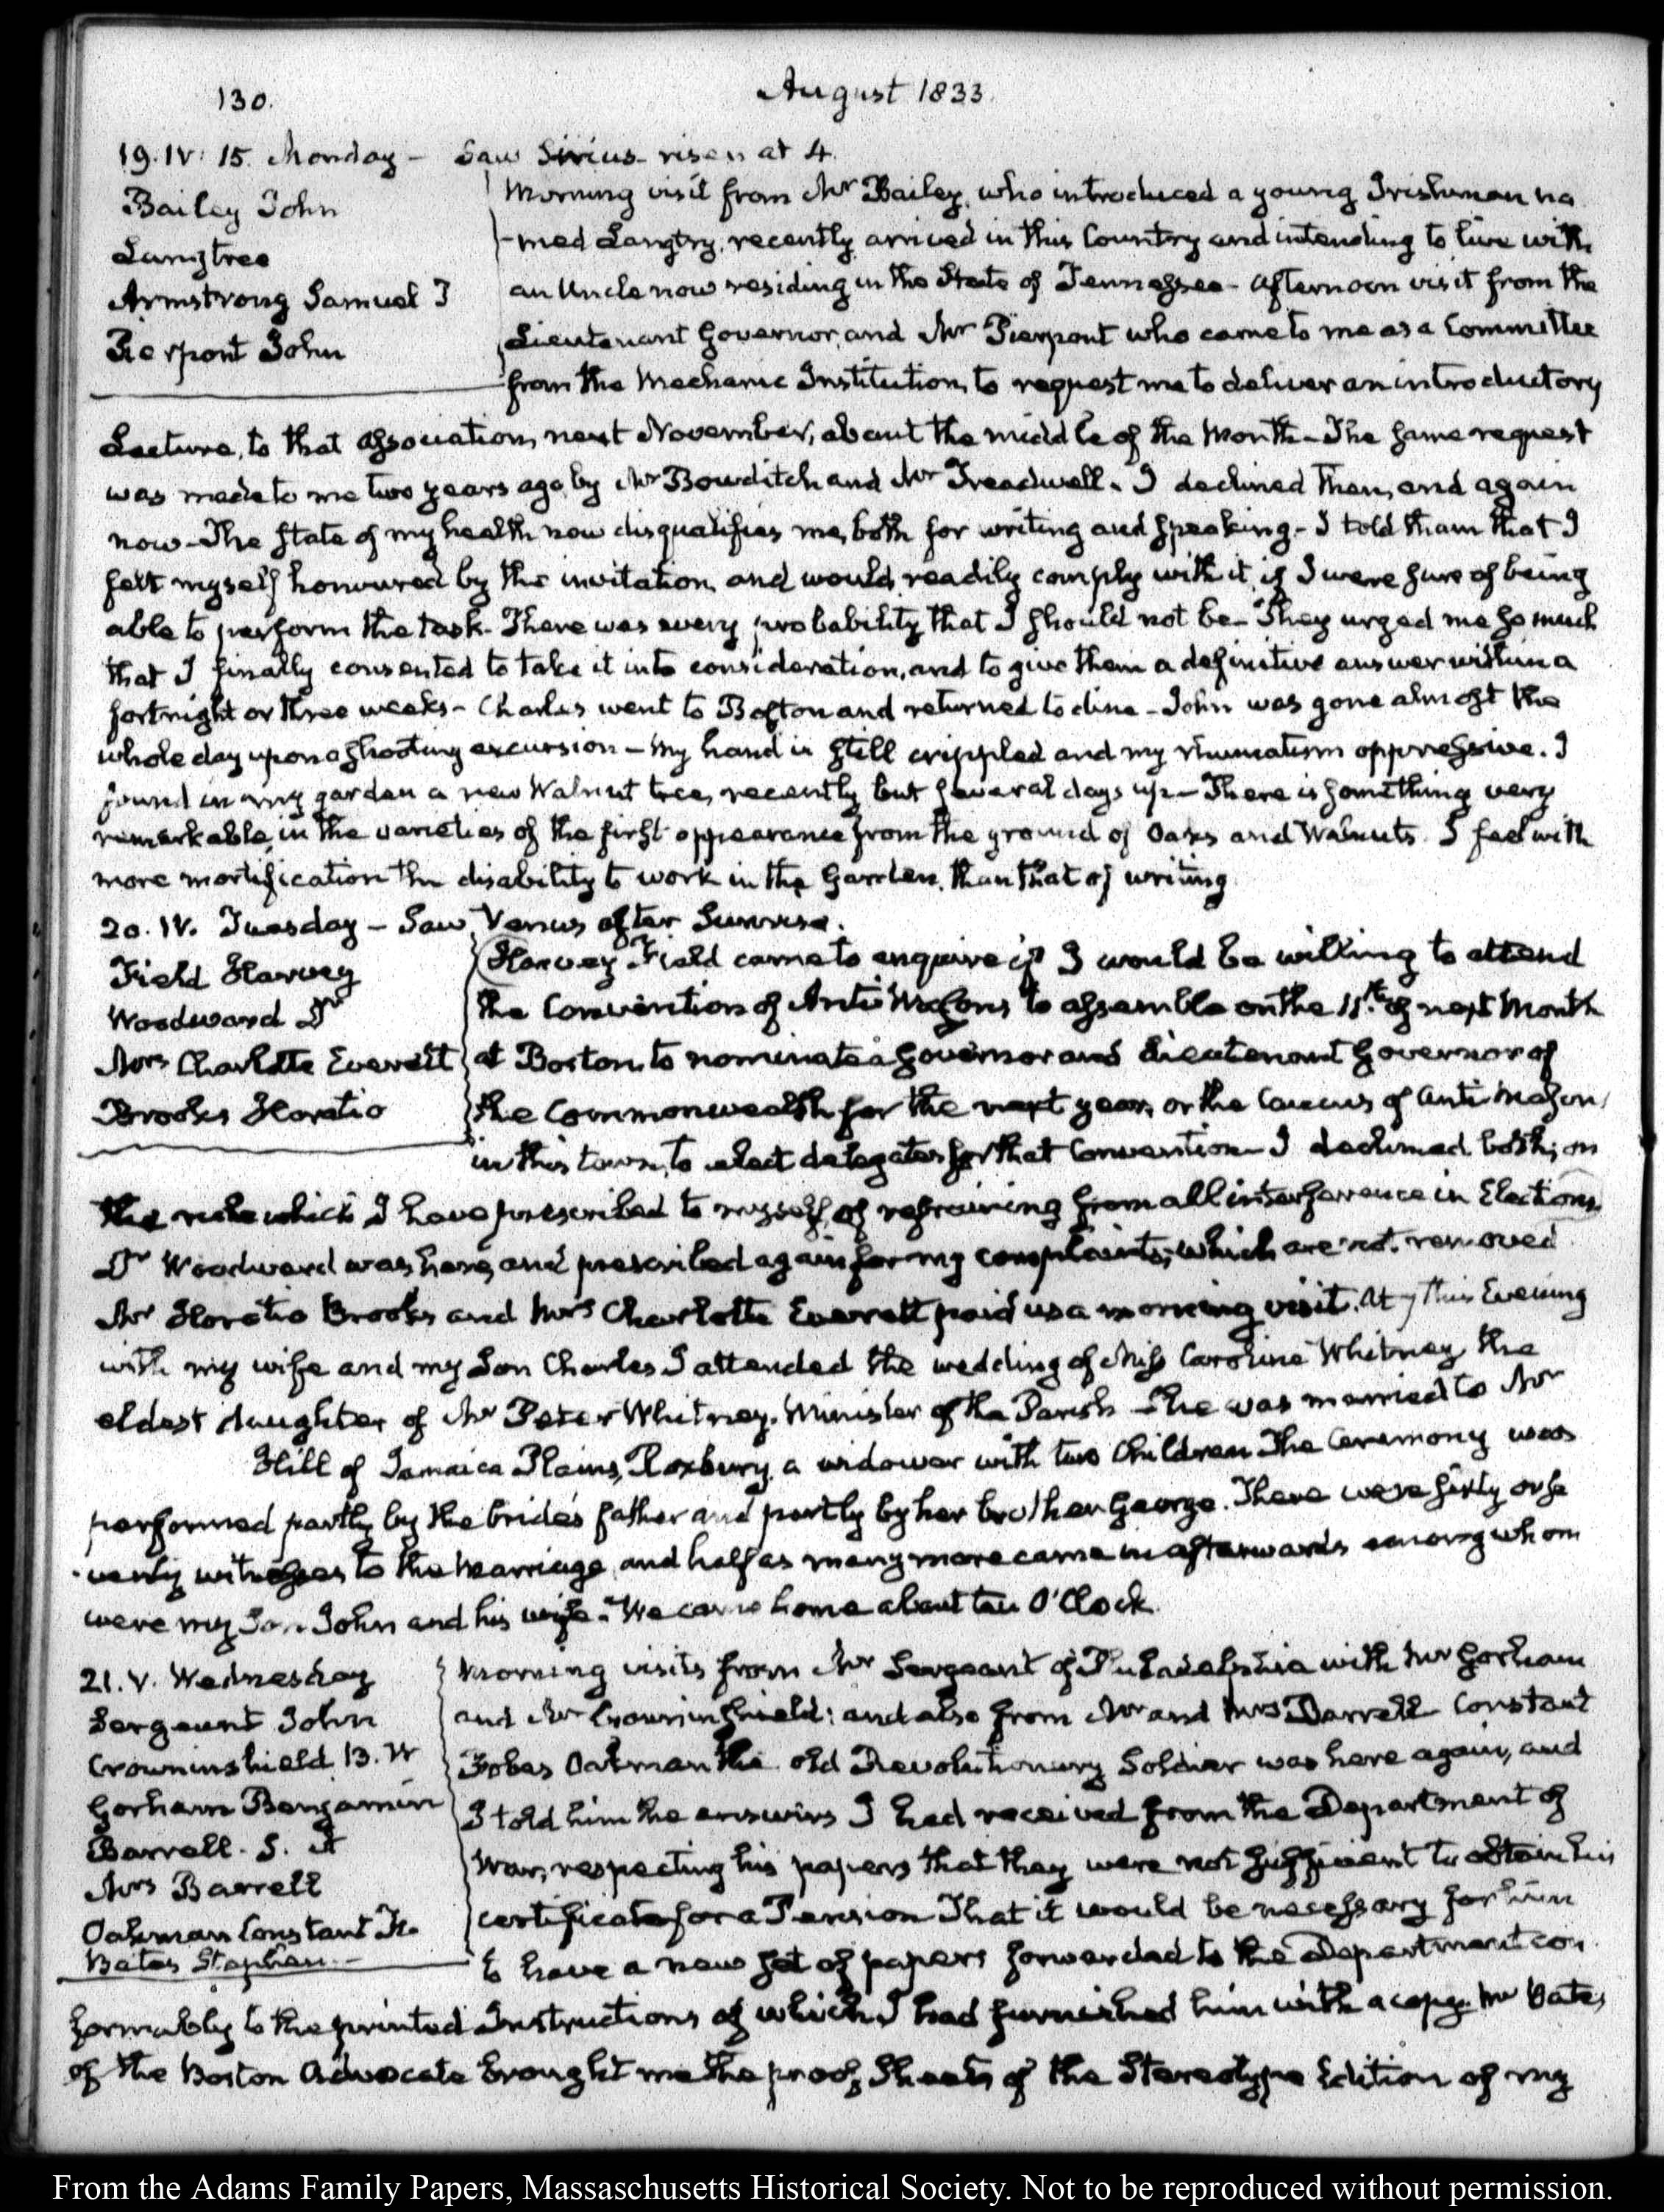 130.
August 1833.
19. IV: 15. Monday - Saw Sirius risen at 4.
Bailey John
Langtree
Armstrong Samuel T
Pierpont John
Morning visit from Mr Bailey, who introduced a young Irishman na
-med Langtry, recently arrived in this Country and intending to live with
an Uncle now residing in the State of Tennessee - Afternoon visit from the
Lieutenant Governor, and Mr Pierpont who came to me as a Committee
from the Mechanic Institution, to request me to deliver an introductory
Lecture, to that association, next November, about the middle of the Month - The same request
was made to me two years ago by Mr Bowditch and Mr Treadwell. I declined then, and again
now - The state of my health now disqualifies me, both for writing and speaking - I told them that I
felt myself honoured by the invitation, and would readily comply with it, if I were sure of being
able to perform the task. There was every probability that I should not be - They urged me so much
that I finally consented to take it into consideration, and to give them a definitive answer within a
fortnight or three weeks - Charles went to Boston and returned to dine - John was gone almost the
whole day upon a shooting excursion - My hand is still crippled and my rheumatism oppressive. I
found in my garden a new Walnut tree, recently but several days up - There is something very
remarkable, in the varieties of the first appearance from the ground of Oaks and Walnuts. I feel with
more mortification the disability to work in the Garden, than that of writing
20. IV. Tuesday - Saw Venus after Sunrise.
Field Harvey
Woodward Dr
Mrs Charlotte Everett
Brooks Horatio
Harvey Field came to enquire if I would be willing to attend
the Convention of Anti Masons to assemble on the 11th. of next Month
at Boston, to nominate a Governor and Lieutenant Governor of
the Commonwealth for the next year, or the Caucus of Anti Masons
in this town, to elect delegates for that Convention - I declined both; on
the rule which I have prescribed to myself, of refraining from all interference in Elections
Dr Woodward was here, and prescribed again for my complaints, which are not removed
Mr Horatio Brooks and Mrs Charlotte Everett paid us a morning visit. At 7 This Evening
with my wife and my Son Charles I attended the wedding of Miss Caroline Whitney, the
eldest daughter of Mr Peter Whitney, Minister of the Parish - She was married to Mr
Hill of Jamaica Plains, Roxbury, a widower with two Children The Ceremony was
performed partly by the bride's father and partly by her brother George. There were sixty or se
-venty witnesses to the Marriage, and half as many more came in afterwards among whom
were my Son John and his wife. We came home about ten O'Clock.
21. V. Wednesday
Sergeant John
Crowninshield B. W
Gorham Benjamin
Barrell. S.
Mrs Barrell
Oakman Constant Fo.
Bates Stephen
Morning visits from Mr Sergeant of Philadelphia with Mr Gorham
and Mr Crowninshield; and also from Mr and Mrs Barrell Constant
Fobes Oakman the old Revolutionary Soldier was here again, and
I told him the answers I had received from the Department of
War, respecting his papers that they were not sufficient to obtain his
certificate for a Pension That it would be necessary for him
to have a new set of papers forwarded to the Department con
formably to the printed Instructions of which I had furnished him with a copy. Mr Bates
of the Boston Advocate brought me the proof Sheets of the Stereotype Edition of my
From the Adams Family Papers, Massachusetts Historical Society. Not to be reproduced without permission.